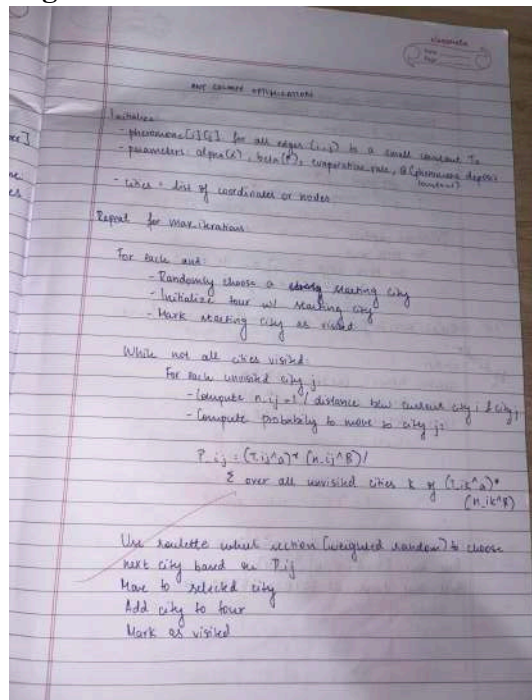 classmate
Date
Page
ANT COLONY OPTIMIZATION
Initialize
- pheromone[i][j] for all edges (i,j) to a small constant To
- parameters: alpha(α), beta(β), evaporation rate, Q (pheromone deposit
constant)
- cities = list of coordinates or nodes
Repeat for max-iterations
For each ant:
- Randomly choose a starting city
- Initialize tour w/ starting city
- Mark starting city as visited
While not all cities visited:
For each unvisited city j:
- Compute n_ij = 1 / distance btw current city i & city j
- Compute probability to move to city j:
P_ij = (T_ij^a)* (n_ij^B)/
Σ over all unvisited cities k of (T_ik^a)*
(n_ik^B)
Use roulette wheel section (weighted random) to choose
next city based on P_ij
Move to selected city
Add city to tour
Mark as visited